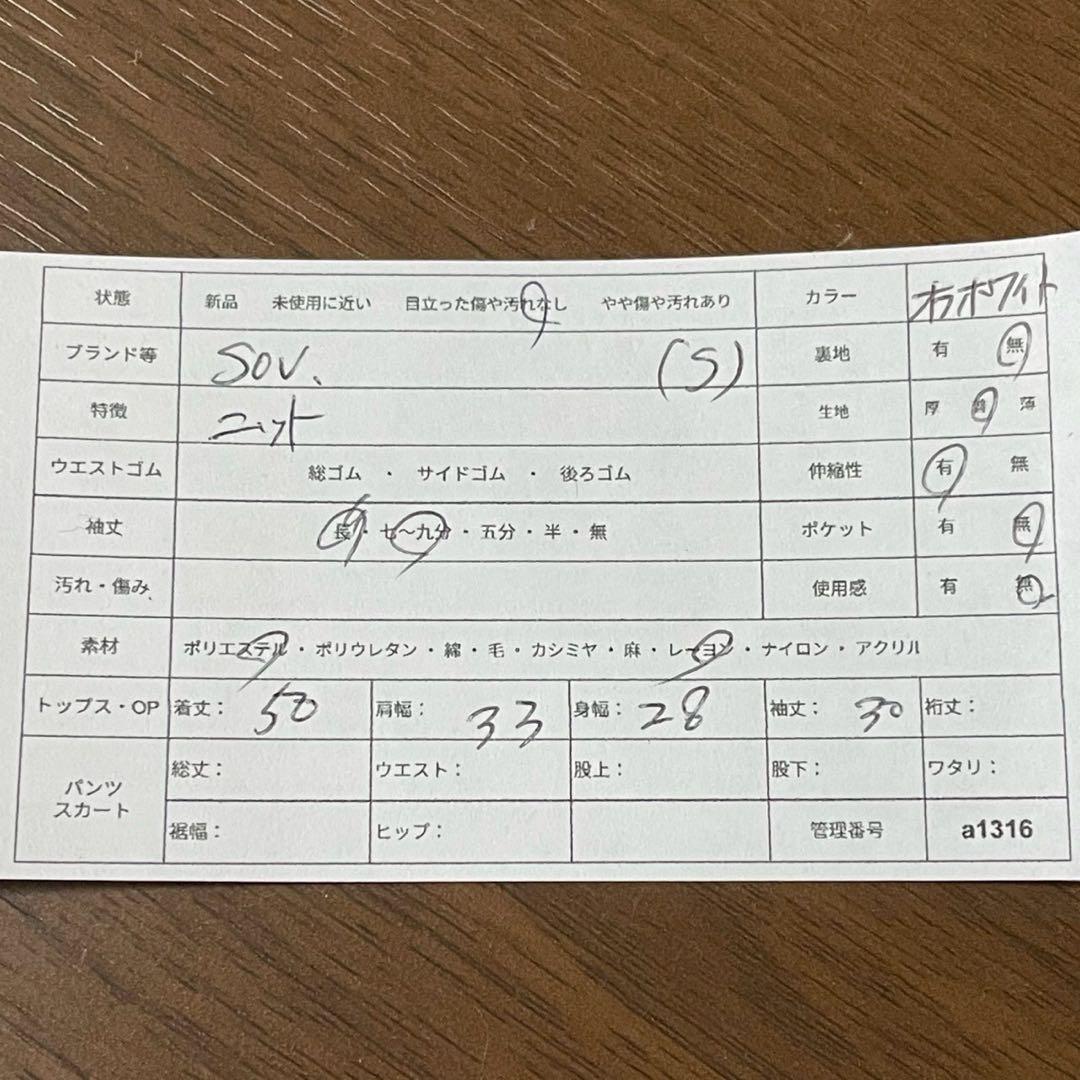 状態 新品 未使用に近い 目立った傷や汚れなし やや傷や汚れあり カラー オフホワイト
ブランド等 SOV. (S) 裏地 有 無
特徴 ニット 生地 厚 普 薄
ウエストゴム 総ゴム ・ サイドゴム ・ 後ろゴム 伸縮性 有 無
袖丈 長・七〜九分・五分・半・無 ポケット 有 無
汚れ・傷み 使用感 有 無
素材 ポリエステル・ポリウレタン・綿・毛・カシミヤ・麻・レーヨン・ナイロン・アクリル
トップス・OP 着丈: 50 肩幅: 33 身幅: 28 袖丈: 30 裄丈:
パンツ スカート 総丈: ウエスト: 股上: 股下: ワタリ:
裾幅: ヒップ: 管理番号 a1316